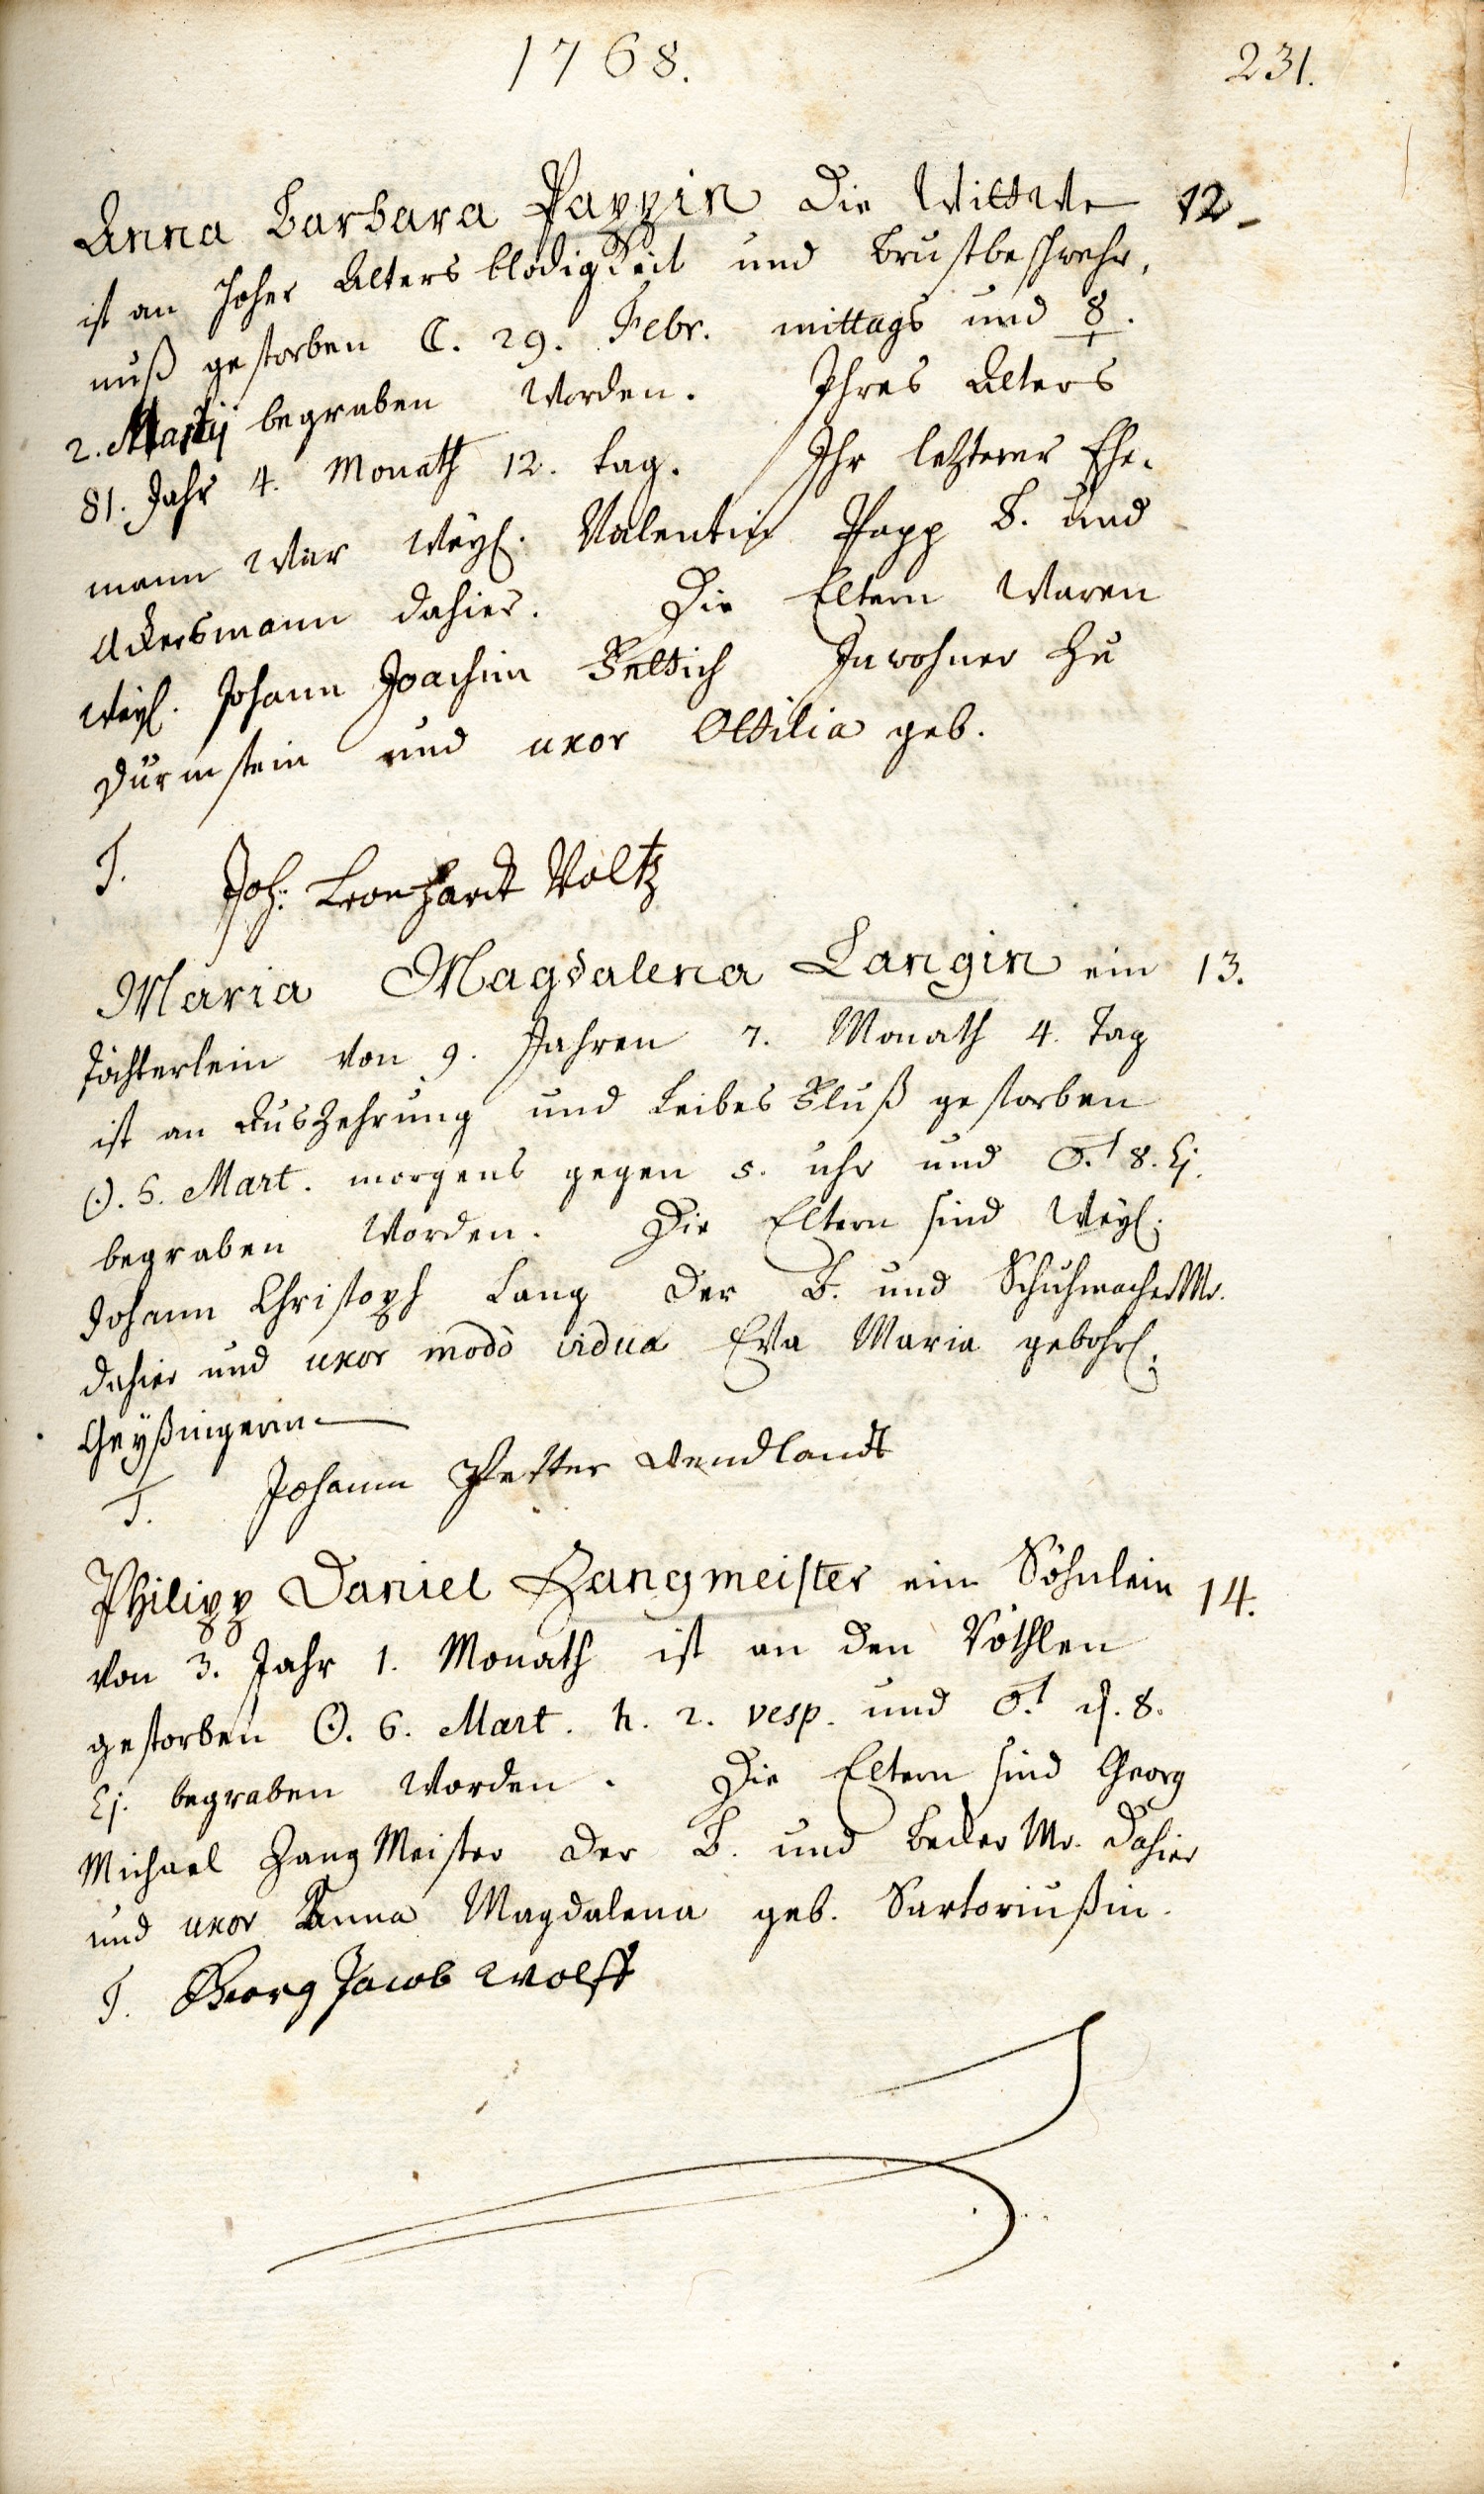 1768.
231.
Anna Barbara Pappin die Wittwe 12.
ist an hoher Alters blödigkeit und Brustbeschwehr,
nuß gestorben ☾. 29. Febr. mittags und ☿.
2. Martij begraben worden. Ihres Alters
81. Jahr 4. Monath 12. tag. Ihr letzterer Ehe-
mann war weyl. Valentin Papp B. und
Ackersmann dahier. Die Eltern waren
weyl. Johann Joachim Inwohner zu
Dürmstein und uxor Ottilia geb.
T. Joh: Leonhardt Voltz
Maria Magdalena Langin ein 13.
Töchterlein von 9. Jahren 7. Monath 4. Tag
ist an Auszehrung und Leibes Fluß gestorben
☉. 6. Mart. morgens gegen 5. uhr und ♂. 8. Ej.
begraben worden. Die Eltern sind weyl.
Johann Christoph Lang der B. und Schuhmacher Mr.
dahier und uxor modò vidua Eva Maria gebohrl.
Geyßingerin
T. Johann Petter Wendlandt
Philipp Daniel Zangmeister ein Söhnlein 14.
von 3. Jahr 1. Monath ist an den Röthlen
gestorben ☉. 6. Mart. h. 2. vesp. und ♂. d. 8.
Ej. begraben worden. Die Eltern sind Georg
Michael Zang Meister der B. und Becker Mr. dahier
und uxor Anna Magdalena geb. Sartoriußin.
T. Georg Jacob Wolff